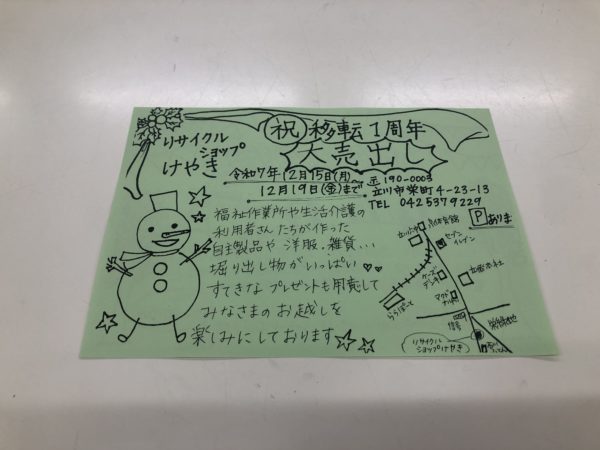 祝 移転1周年
大売出し
リサイクル
ショップ
けやき
令和7年12月15日(月)〜
12月19日(金)まで
〒190-0003
立川市栄町4-23-13
TEL 0425379229
P あります
福祉作業所や生活介護の
利用者さんたちが作った
自主製品や 洋服、雑貨...
堀り出し物がいっぱい
すてきなプレゼントも用意して
みなさまのお越しを
楽しみにしております
セブン
イレブン
ケーズ
デンキ
マクド
ナルド
ららぽーと
信号
リサイクル
ショップけやき